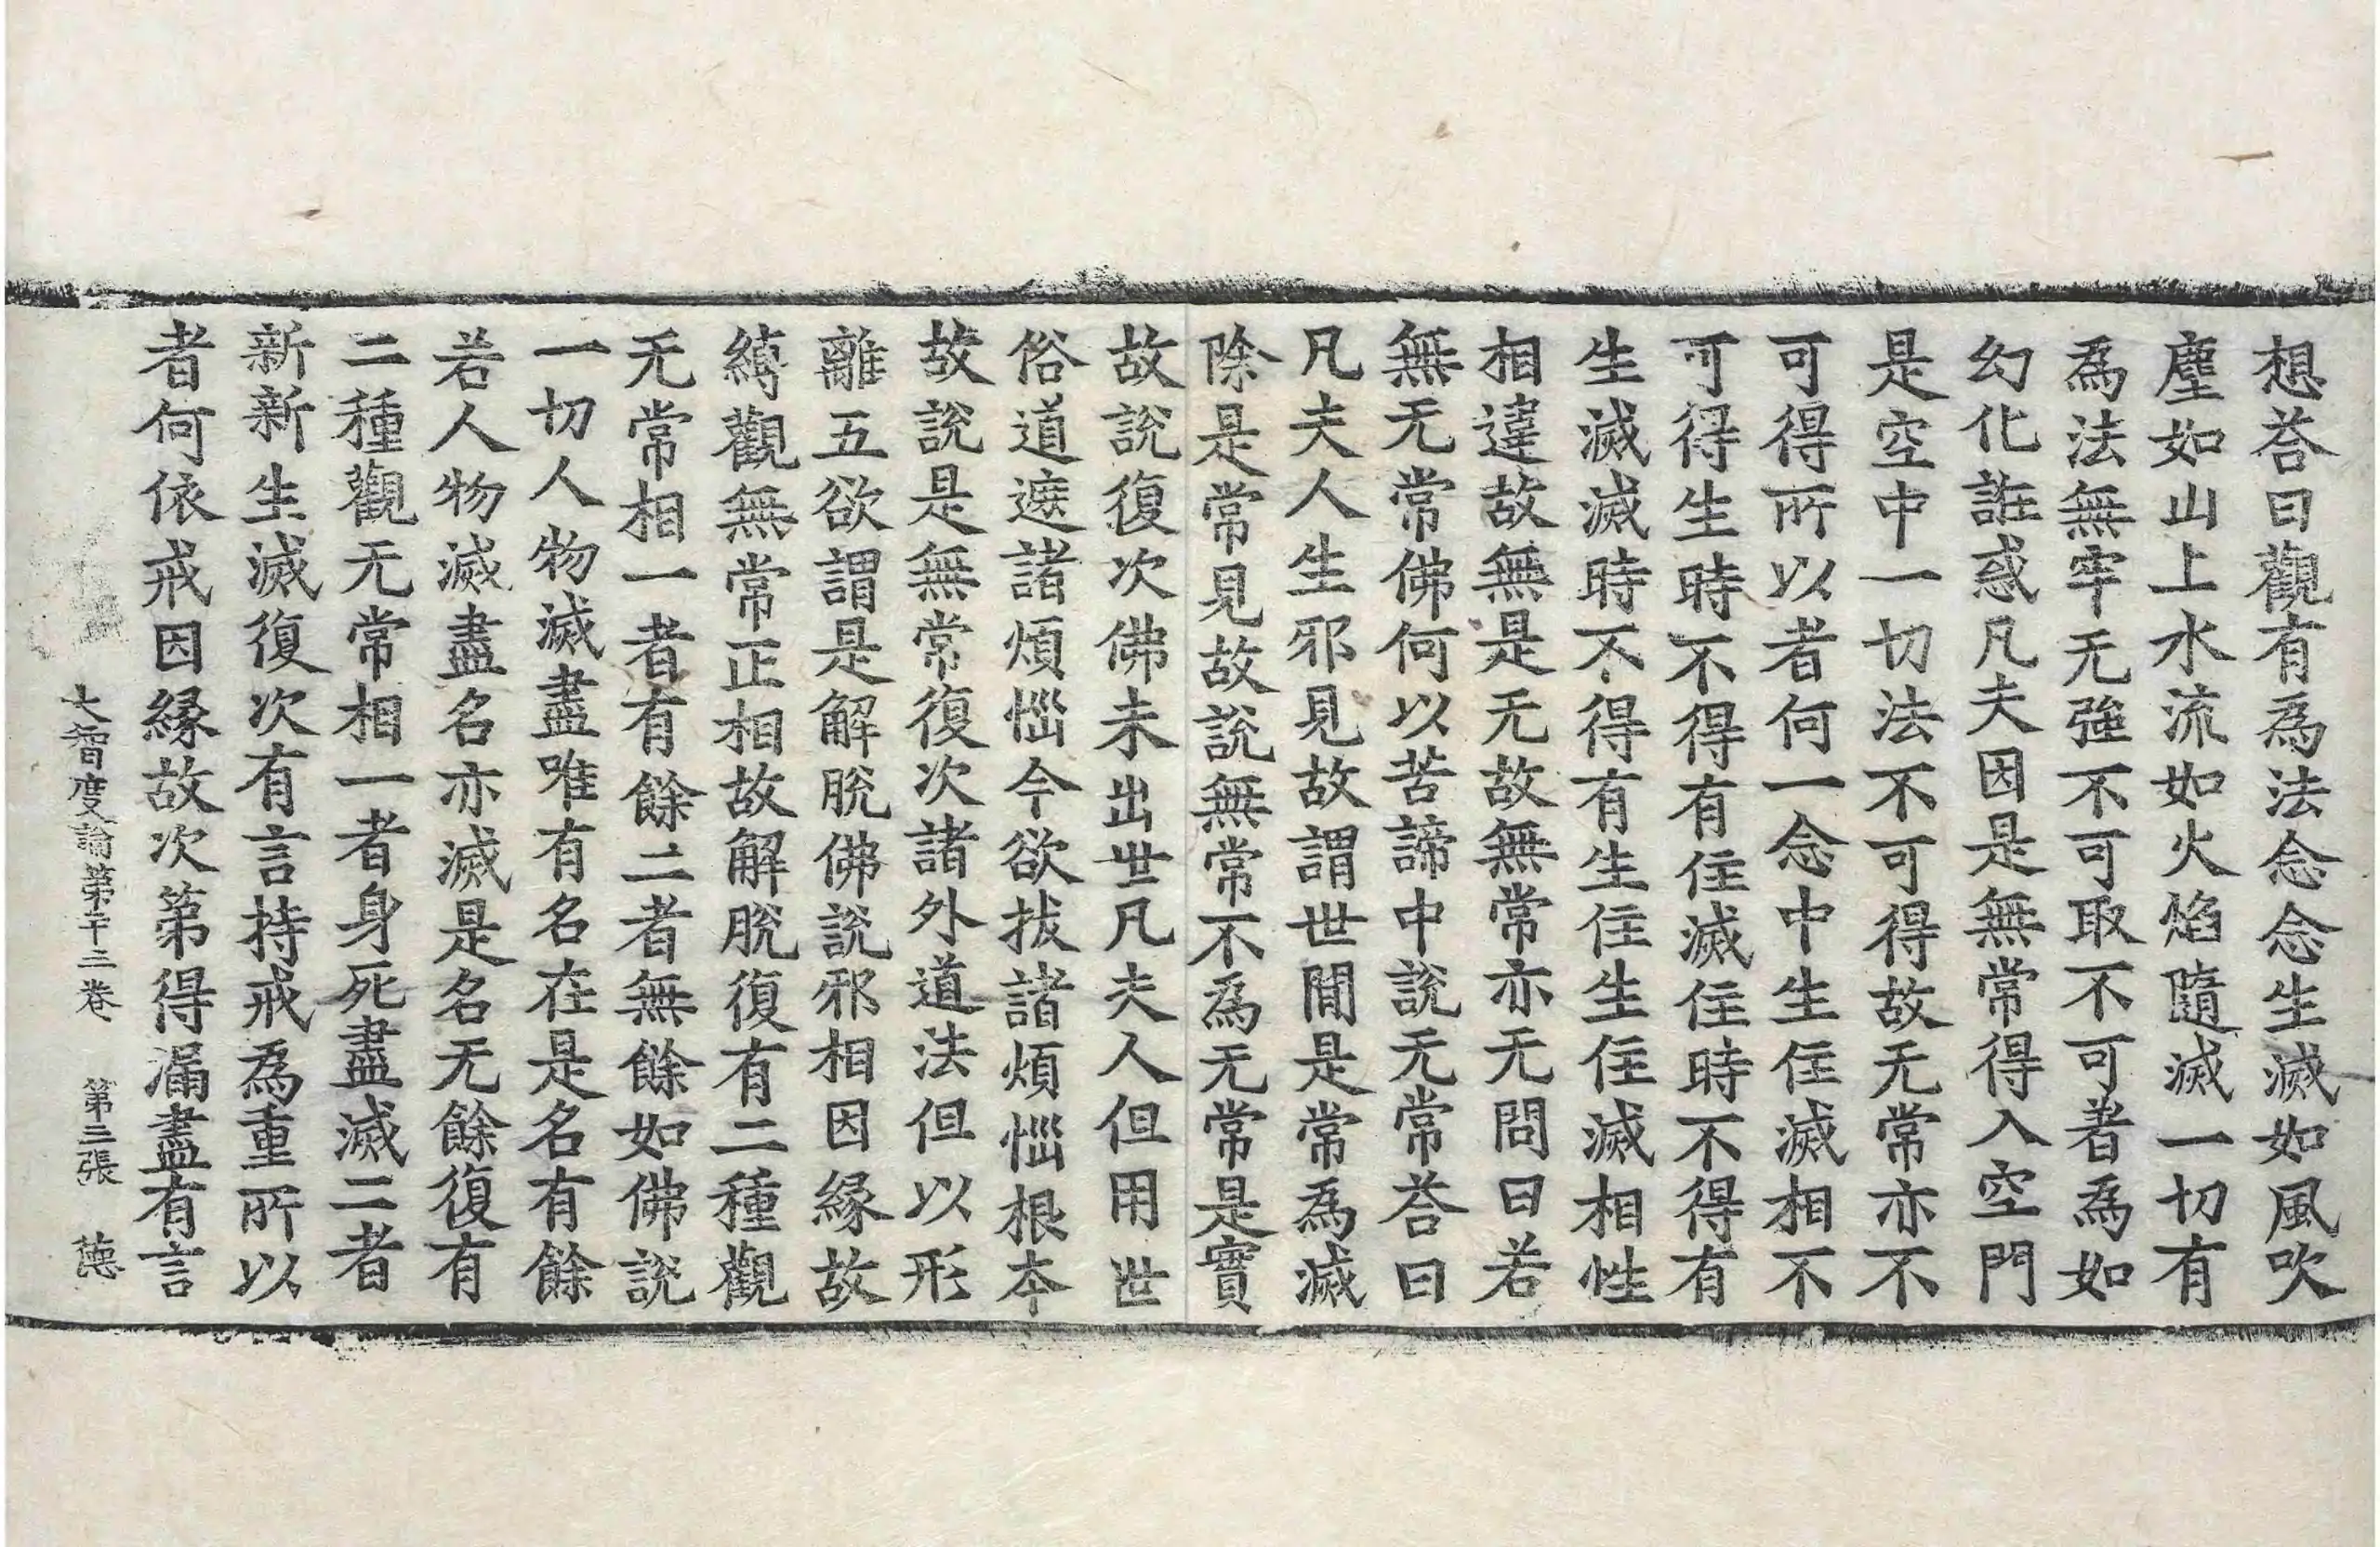 想荅曰觀有為法念念生滅如風吹
塵如山上水流如火焰隨滅一切有
為法無牢无強不可取不可者為如
幻化誑惑凡夫因是無常得入空門
是空中一切法不可得故无常亦不
可得所以者何一念中生住滅相不
可得生時不得有住滅住時不得有
生滅滅時不得有生住生住滅相性
相違故無是无故無常亦无問曰若
無无常佛何以苦諦中說无常荅曰
凡夫人生邪見故謂世間是常為滅
除是常見故說無常不為无常是實
故說復次佛未出世凡夫人但用世
俗道遮諸煩惱今欲拔諸煩惱根本
故說是無常復次諸外道法但以形
離五欲謂是解脫佛說邪相因緣故
縛觀無常正相故解脫復有二種觀
无常相一者有餘二者無餘如佛說
一切人物滅盡唯有名在是名有餘
若人物滅盡名亦滅是名无餘復有
二種觀无常相一者身死盡滅二者
新新生滅復次有言持戒為重所以
者何依戒因緣故次第得漏盡有言
大智度論第二十三卷 第三張 德